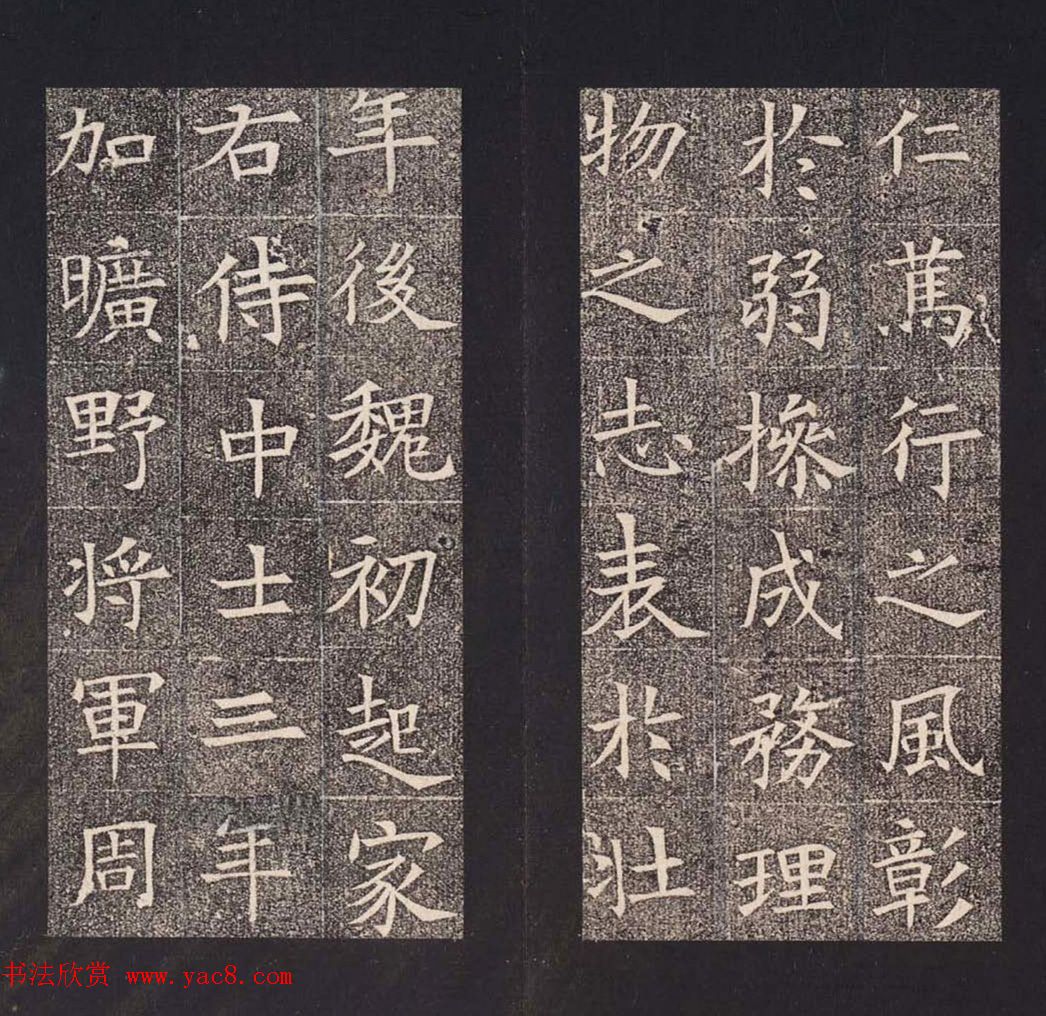 仁蔿行之風彰
於弱摻成務理
物之志表於壯
年後魏初起家
右侍中士三年
加曠野將軍周
书法欣赏 www.yac8.com